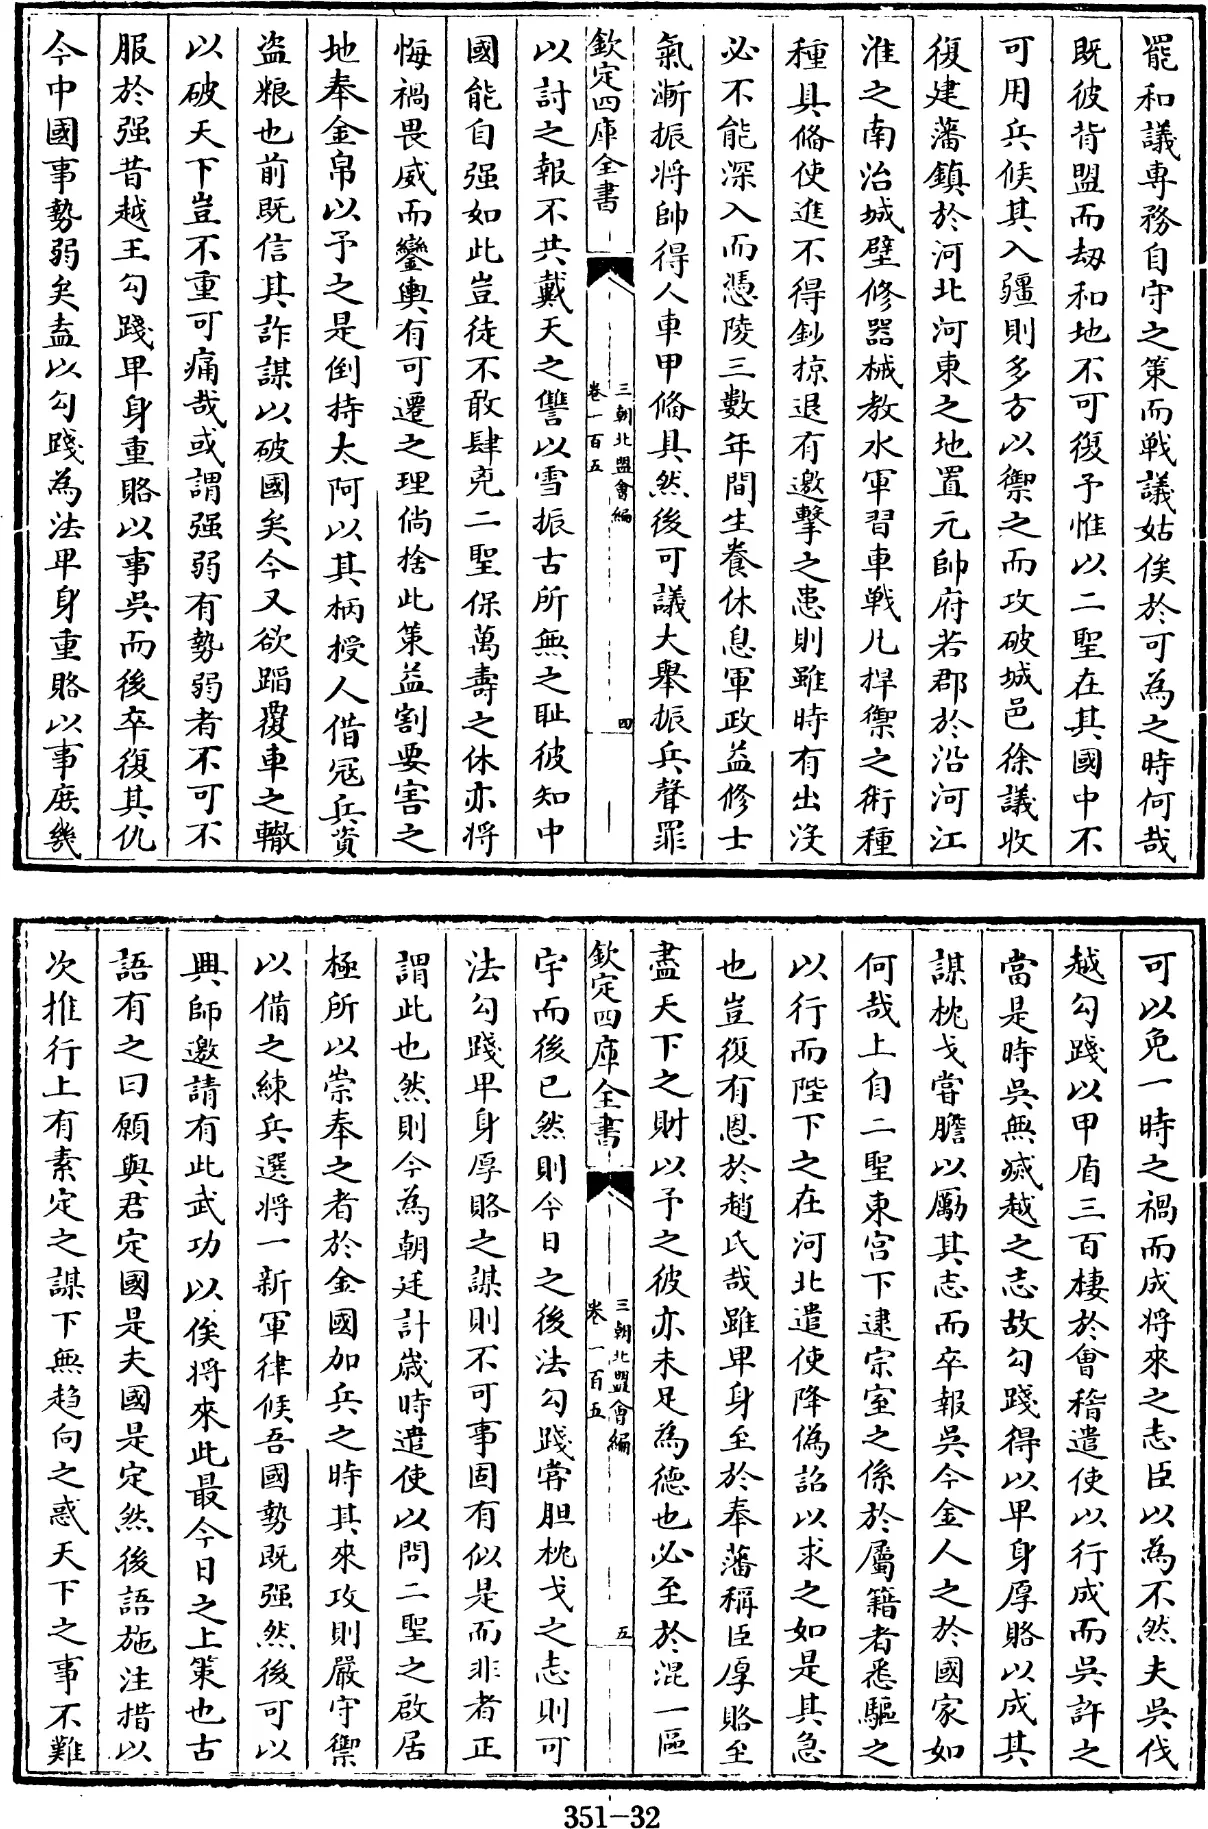 罷和議專務自守之策而戰議姑俟於可為之時何哉
既彼背盟而劫和地不可復予惟以二聖在其國中不
可用兵候其入疆則多方以禦之而攻破城邑徐議收
復建藩鎮於河北河東之地置元帥府若郡於沿河江
淮之南治城壁修器械教水軍習車戰凡捍禦之術種
種具脩使進不得鈔掠退有邀擊之患則雖時有出没
必不能深入而憑陵三數年間生養休息軍政益修士
氣漸振將帥得人車甲脩具然後可議大舉振兵聲罪
欽定四庫全書
三朝北盟會編
卷一百五
四
以討之報不共戴天之讐以雪振古所無之耻彼知中
國能自强如此豈徒不敢肆兇二聖保萬壽之休亦將
悔禍畏威而鑾輿有可還之理倘捨此策益割要害之
地奉金帛以予之是倒持太阿以其柄授人借冦兵資
盜粮也前既信其詐謀以破國矣今又欲蹈覆車之轍
以破天下豈不重可痛哉或謂强弱有勢弱者不可不
服於强昔越王勾踐卑身重賂以事吳而後卒復其仇
今中國事勢弱矣盍以勾踐為法卑身重賂以事庶幾
可以免一時之禍而成將來之志臣以為不然夫吳伐
越勾踐以甲盾三百棲於會稽遣使以行成而吳許之
當是時吳無滅越之志故勾踐得以卑身厚賂以成其
謀枕戈嘗膽以勵其志而卒報吳今金人之於國家如
何哉上自二聖東宫下逮宗室之係於屬籍者悉驅之
以行而陛下之在河北遣使降偽詔以求之如是其急
也豈復有恩於趙氏哉雖卑身至於奉藩稱臣厚賂至
盡天下之財以予之彼亦未足為德也必至於混一區
欽定四庫全書
三朝北盟會編
卷一百五
五
宇而後已然則今日之後法勾踐嘗胆枕戈之志則可
法勾踐卑身厚賂之謀則不可事固有似是而非者正
謂此也然則今為朝廷計歳時遣使以問二聖之啟居
極所以崇奉之者於金國加兵之時其來攻則嚴守禦
以備之練兵選將一新軍律候吾國勢既强然後可以
興師邀請有此武功以俟將來此最今日之上策也古
語有之曰願與君定國是夫國是定然後語施注措以
次推行上有素定之謀下無趋向之惑天下之事不難
351-32